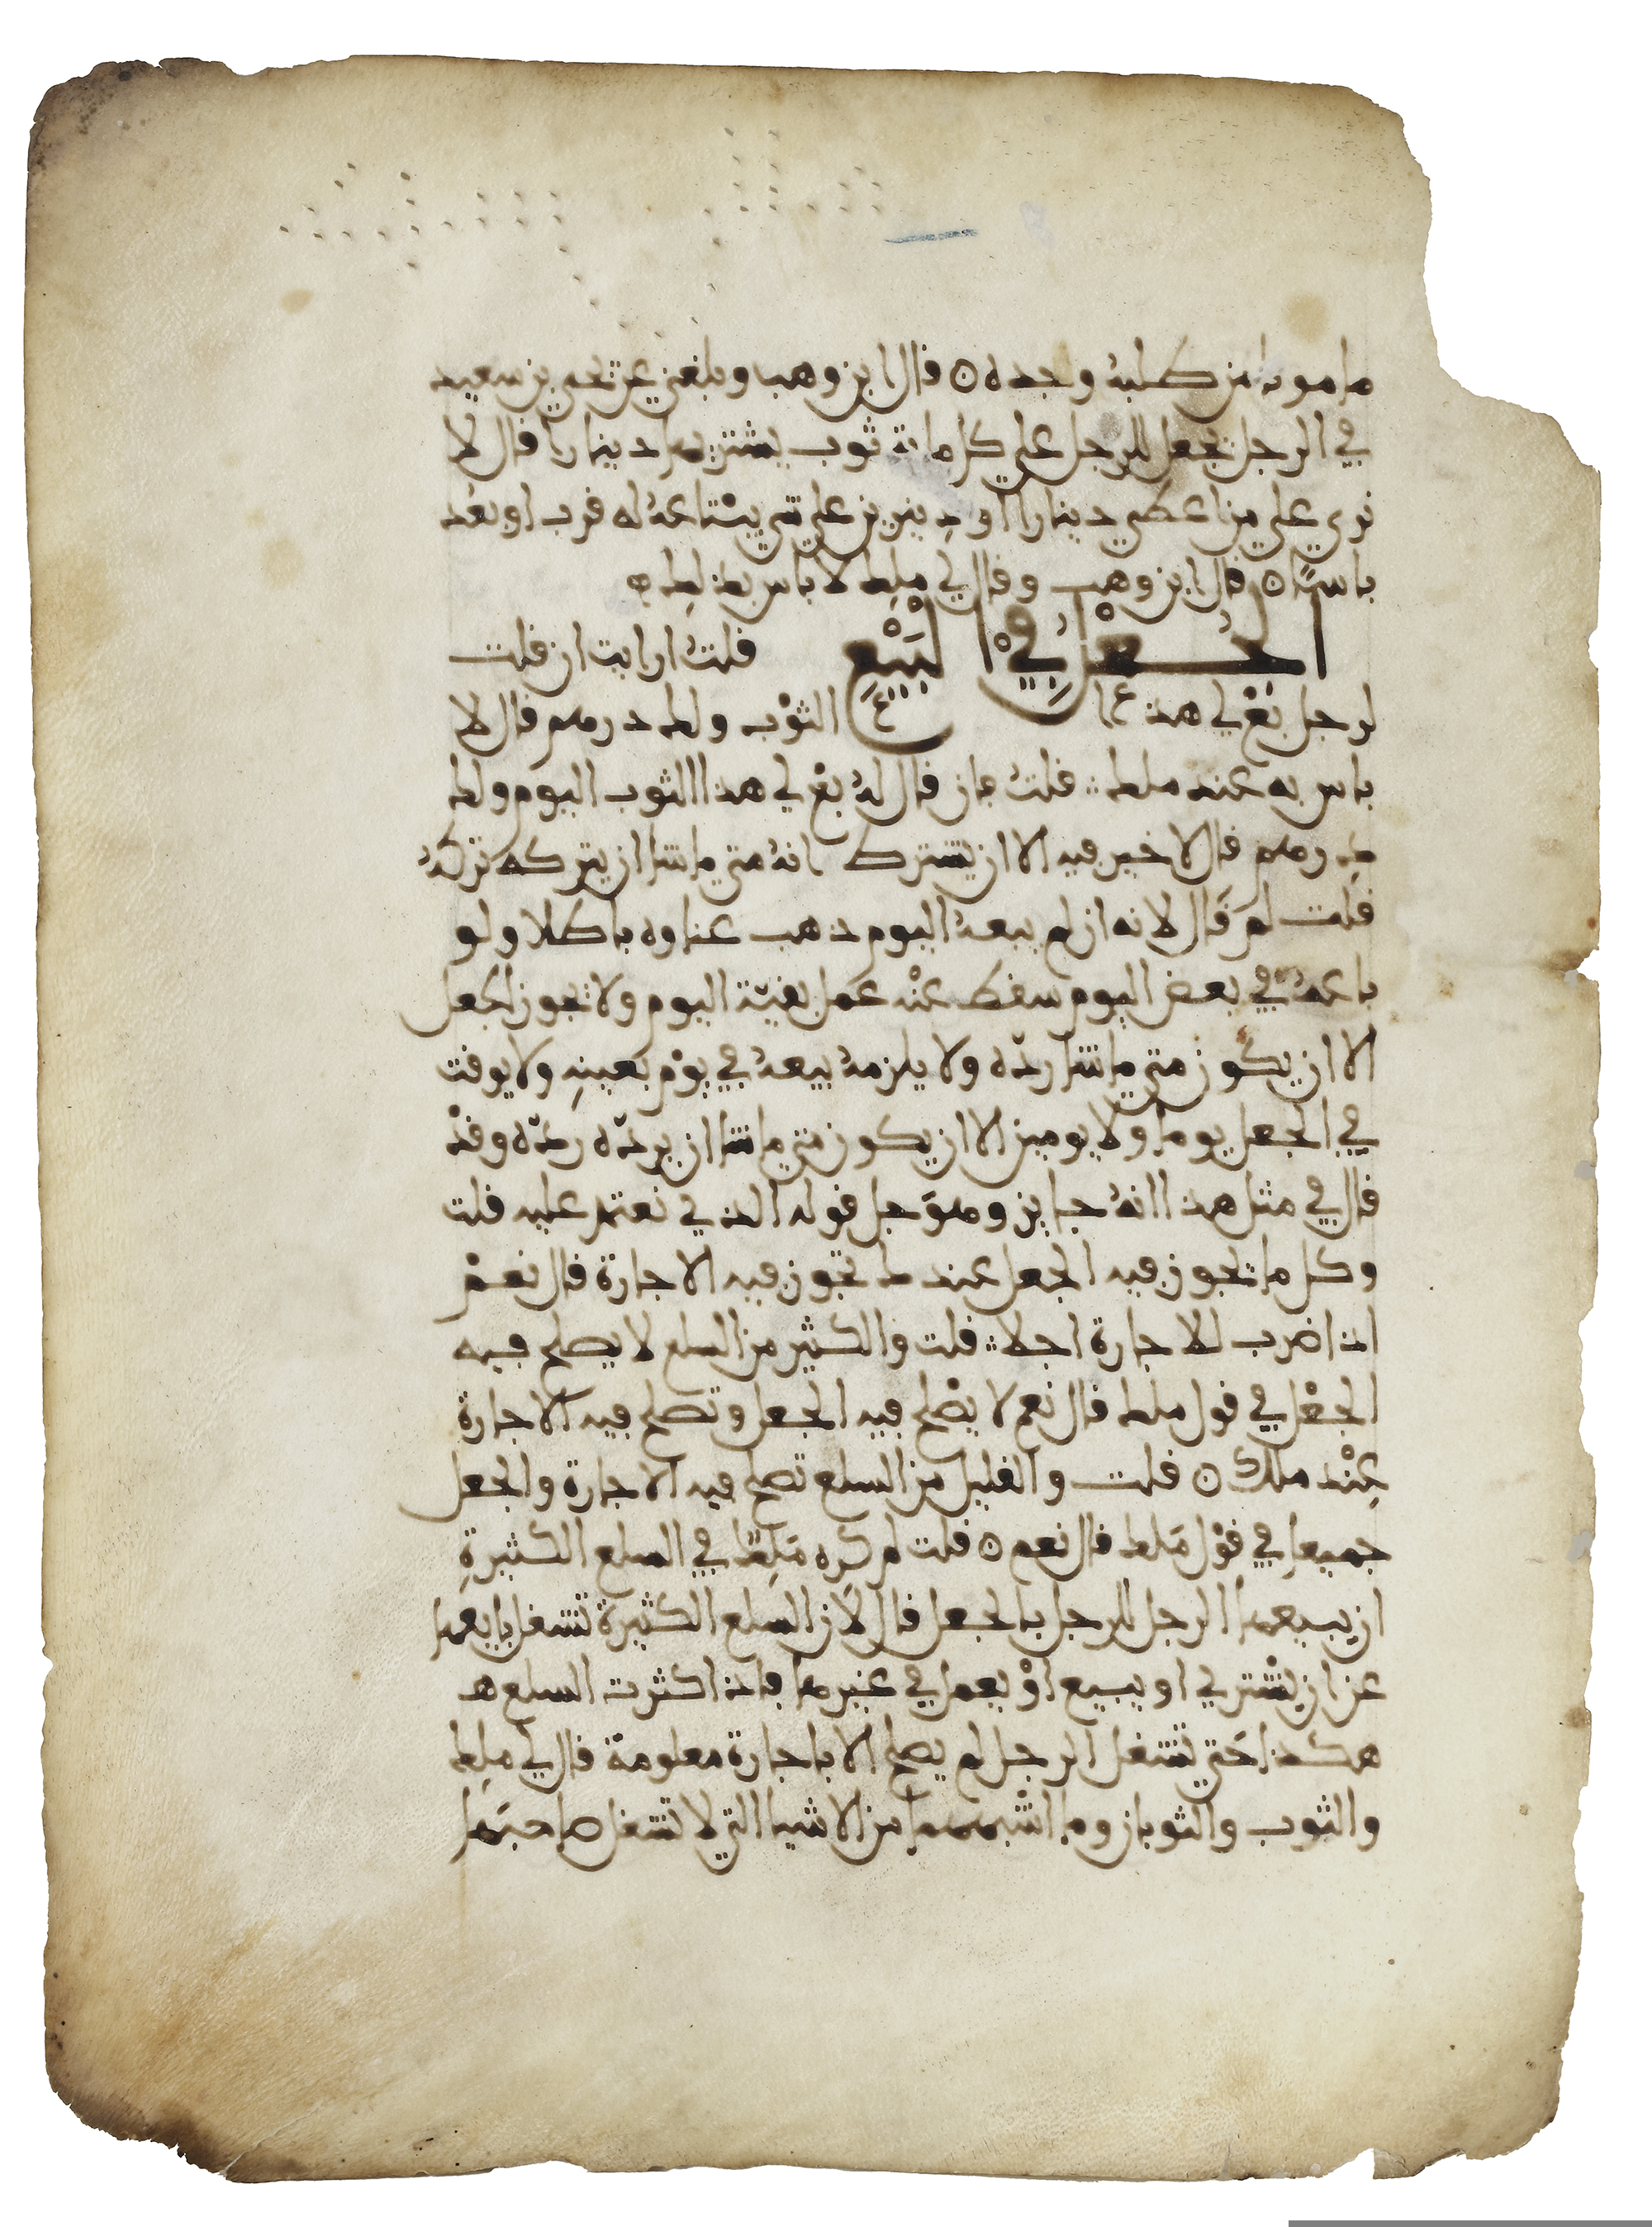 ما مونة من طلبه وجده ه قال ابن وهب وبلغني عن يحيى بن سعيد
في الرجل يجعل للرجل على كل ماية ثوب يشتريها دينارا قال لا
نرى على من اعطى دينارا او دينرين على شي يبتاعه له قرب او بعد
باسا ه قال ابن وهب وقال لي ملك لا باس بذلك ه
الجُعْل فِي الْبَيْعِ قلت ارايت ان قلت
لرجل بعْ لي هذا الثوْب ولك درهم قال لا
باس به عند ملك ∴ قلت فان قال له بعْ لي هذا الثوب اليوم ولك
درهم قال لا خير فيه الا ان يشترط انه متى ما شا ان يتركه تركه
قلت لم قال لانه ان لم يبعه اليوم ذهب عناوه باطلا ولو
باعه في بعض اليوم سقط عنْه عمل بقية اليوم ولا يجوز الجعل
الا ان يكون متى ما شا ردّه ولا يلزمه بيعه في يوْم بعينهِ ولا يوقت
في الجعل يوما ولا يومين الا ان يكون متى ما شا ان يردّه ردّه وقدْ
قال في مثل هذا انه جايز وهو جل قوله الذي نعتمد عليه قلت
وكل ما يجوز فيه الجعل عندك تجوز فيه الاجارة قال نعمْ
اذا ضرب للاجارة اجلا ∴ قلت والكثير من السلع لا يصلح فيه
الجعْل في قول ملك قال نعم لا يصْلح فيه الجعل وتصلح فيه الاجارة
عِنْد ملك ه قلت والقليل من السلع تصلح فيه الاجارة والجعل
جميعا في قوْل مَلك قال نعم ه قلت لم كره مَلِك في السلع الكثيرةِ
ان يبيعها الرجل للرجل بالجعل قال لاَن السلع الكثيرة تشغل بايعها
عن ان يشْتري او يبيع اوْ يعمل في غيرها فاذا كثرت السلع ه
هكذا حتى تشغل الرجل لم يصلح الا باجارة معلومة قال لي ملِك
والثوب والثوبان وما اشْبههما من الاشيا التي لا تشغل صاحبَها